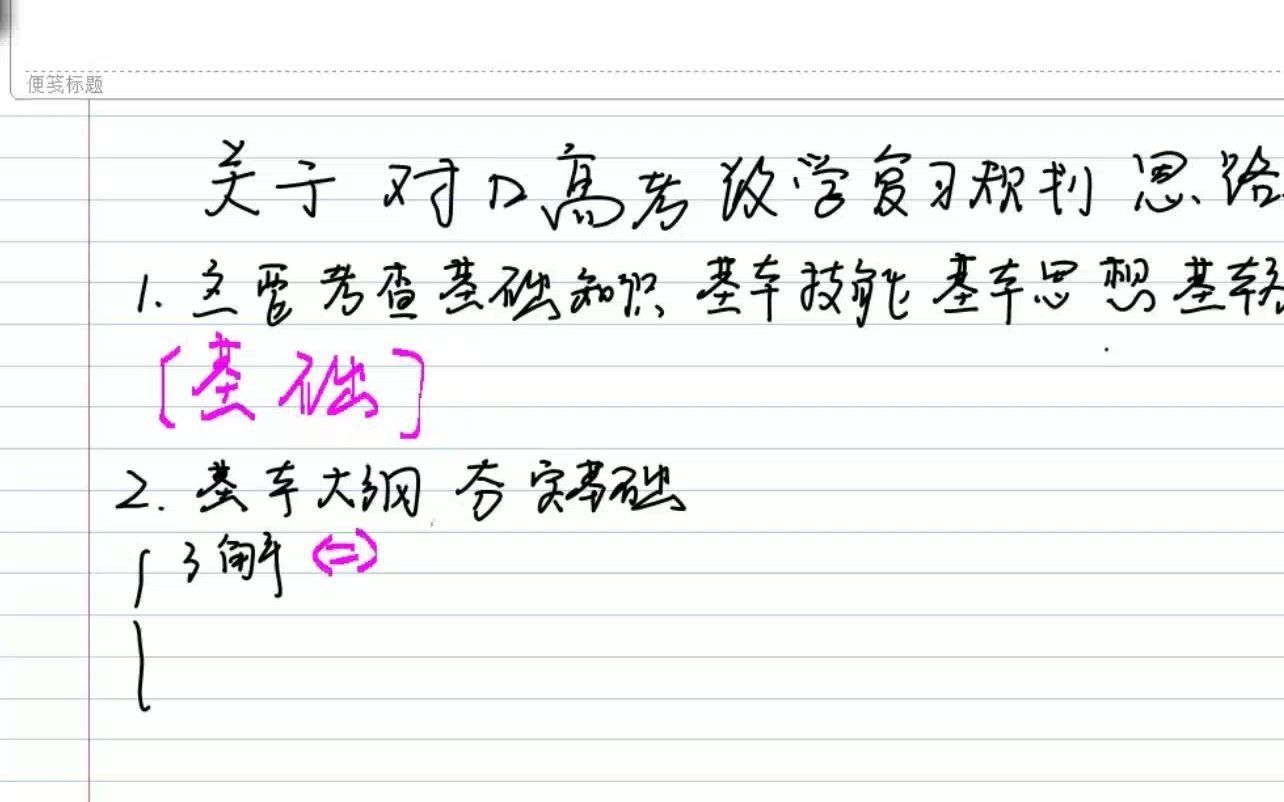 便笺标题
关于对口高考数学复习规划思路
1. 主要考查基础知识 基本技能 基本思想 基本
[基础]
2. 基本大纲 夯实基础
了解 <=>